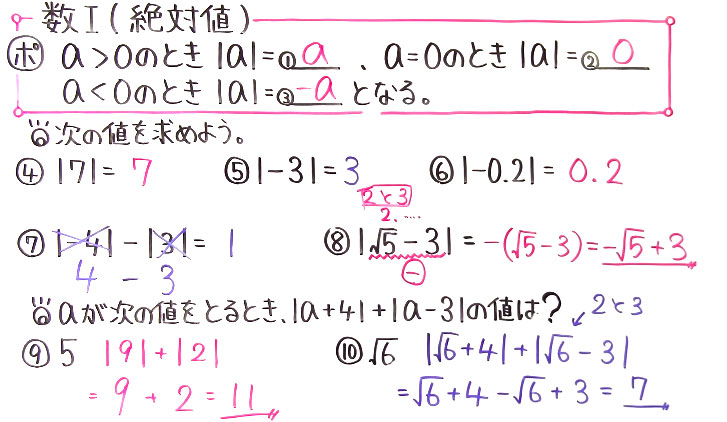 数Ⅰ(絶対値)
ポ a>0のとき |a|=①a 、a=0のとき |a|=②0
a<0のとき |a|=③-a となる。
次の値を求めよう。
④ |7|= 7 ⑤ |-3|= 3 ⑥ |-0.2|= 0.2
2と3
2.……
⑦ |-4|-|3|= 1 ⑧ |√5-3| = -(√5-3)=-√5+3
4 - 3 ㊀
aが次の値をとるとき、|a+4|+|a-3|の値は? 2と3
⑨ 5 |9|+|2| ⑩ √6 |√6+4|+|√6-3|
= 9 + 2 = 11 =√6+4-√6+3 = 7